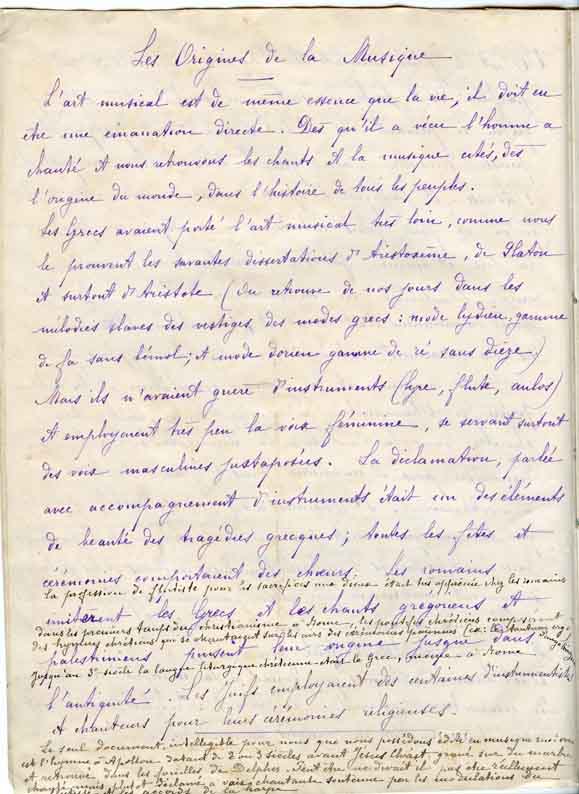 Les Origines de la Musique
L'art musical est de même essence que la vie, il doit en
être une émanation directe. Dès qu'il a vécu l'homme a
chanté et nous retrouvons les chants et la musique cités, dès
l'origine du monde, dans l'histoire de tous les peuples.
Les Grecs avaient porté l'art musical très loin, comme nous
le prouvent les savantes dissertations d'Aristoxène, de Platon
et surtout d'Aristote (On retrouve de nos jours dans les
mélodies slaves des vestiges des modes grecs : mode lydien, gamme
de fa sans bémol ; et mode dorien gamme de ré sans dièze)
Mais ils n'avaient guère d'instruments (lyre, flute, aulos)
et employaient très peu la voix féminine, se servant surtout
des voix masculines juxtaposées. La déclamation, parlée
avec accompagnement d'instruments était un des éléments
de beauté des tragédies grecques ; toutes les fêtes et
cérémonies comportaient des chœurs. Les romains
La profession de flûtiste pour les sacrifices aux dieux était très appréciée chez les romains
imitèrent les Grecs et les chants grégoriens et
dans les premiers temps du christianisme à Rome, les pontifes chrétiens composèrent
des hymnes chrétiens qui se chantaient sur les airs des cérémonies païennes
palestriniens puisent leur origine jusque dans
Jusqu'au 3e siècle la langue liturgique chrétienne était le grec, même à Rome
l'antiquité. Les Juifs employaient des centaines d'instrumentistes
et chanteurs pour leurs cérémonies religieuses.
Le seul document, intelligible pour nous que nous possédons en musique
est l'hymne à Apollon datant de 2 ou 3 siècles avant Jésus Christ gravé sur du marbre
et retrouvé dans les fouilles de Delphes. Peut être ne devait il pas être réellement
chanté mais plutôt déclamé à voix chantante soutenue par les modulations du
et les accords de la harpe